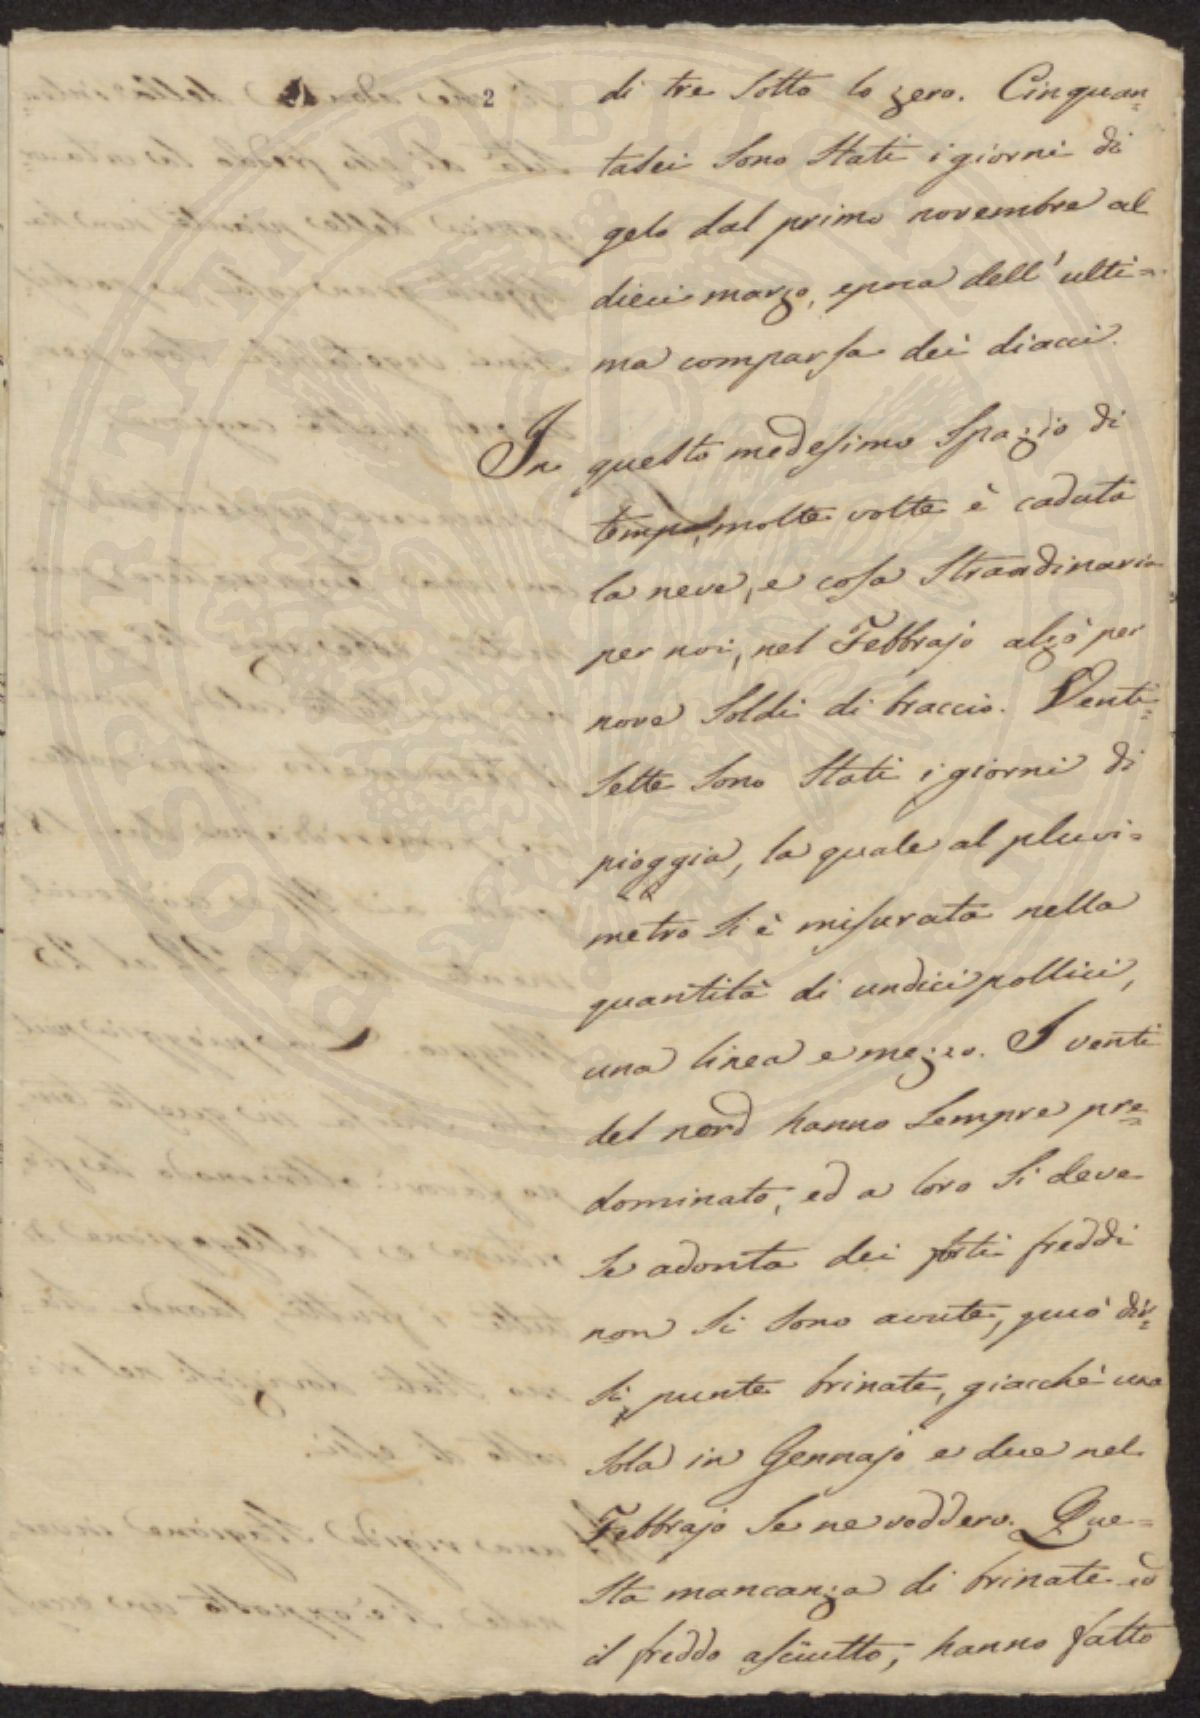 2
di tre sotto lo zero. Cinquan=
tasei sono stati i giorni di
gelo dal primo novembre al
dieci marzo, epoca dell' ulti=
ma comparsa dei diacci.
In questo medesimo spazio di
tempo, molte volte è caduta
la neve, e cosa straordinaria
per noi, nel Febbrajo alzò per
nove soldi di braccio. Venti=
sette sono stati i giorni di
pioggia, la quale al pluvi=
metro si è misurata nella
quantità di undici pollici,
una linea e mezzo. I venti
del nord hanno sempre pre=
dominato, ed a loro si deve
se adonta dei forti freddi
non si sono avute, può dir=
si, punte brinate, giacchè una
sola in Gennajo e due nel
Febbrajo se ne veddero. Que=
sta mancanza di brinate ed
il freddo asciutto, hanno fatto